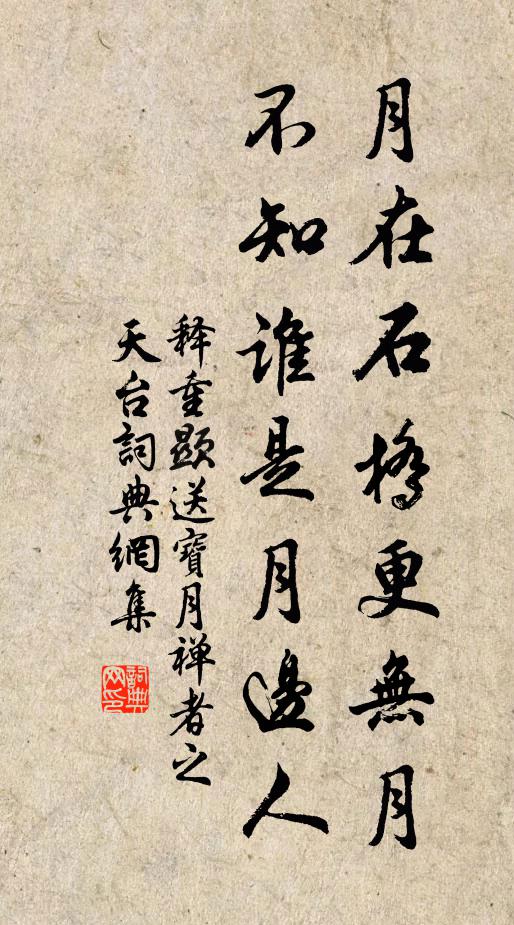 月在石橋更無月
不知誰是月邊人
释重顯送寶月禅者之
天台詞典網集
詞典網印